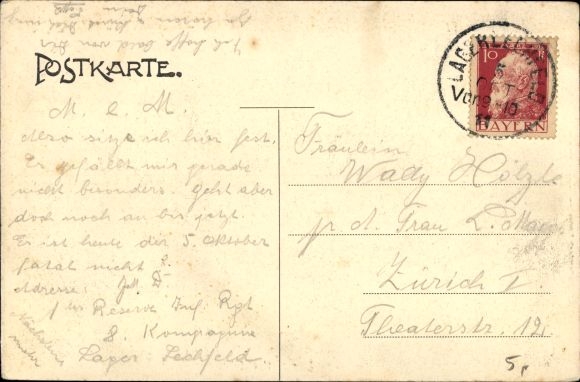 Ich hoffe bald von Dir
zu hören
POSTKARTE.
M. l. M.
Also sitze ich hier fest.
Es gefällt mir gerade
nicht besonders. Geht aber
doch noch an bis jetzt.
Es ist heute der 5. Oktober
fatal nicht?
Adresse:
Reserve Inf. Rgt
8. Kompagnie
Lager Lechfeld.
Nächstens
mehr
LAGERLECHFELD
5
OCT
Vor 9-10
11
10
BAYERN
Fräulein
Wady Hölzle
pr. A. Frau L.
Zürich I.
Theaterstr. 12.
5,